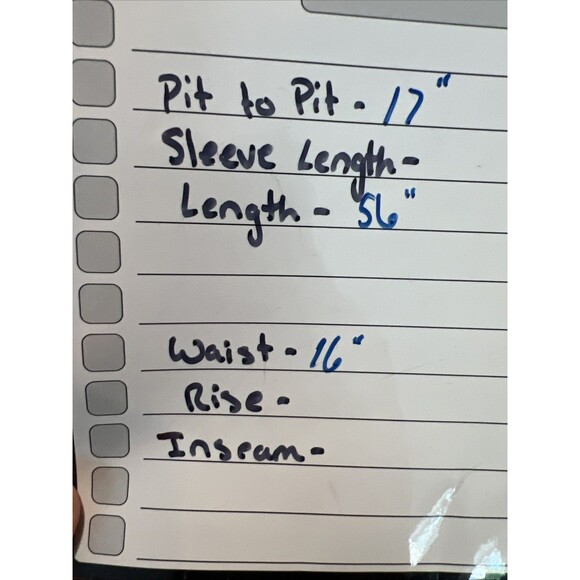 Pit to Pit - 17"
Sleeve Length -
Length - 56"
Waist - 16"
Rise -
Inseam -